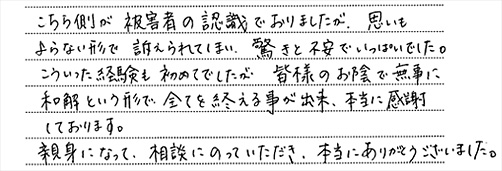 こちら側が被害者の認識でおりましたが、思いも
よらない形で訴えられてしまい、驚きと不安でいっぱいでした。
こういった経験も初めてでしたが皆様のお陰で無事に
和解という形で全てを終える事が出来、本当に感謝
しております。
親身になって、相談にのっていただき、本当にありがとうございました。